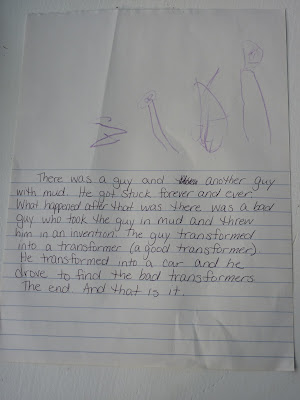 There was a guy and another guy
with mud. He got stuck forever and ever.
What happened after that was there was a bad
guy who took the guy in mud and threw
him in an invention. The guy transformed
into a transformer (a good transformer).
He transformed into a car and he
drove to find the bad transformers.
The end. And that is it.